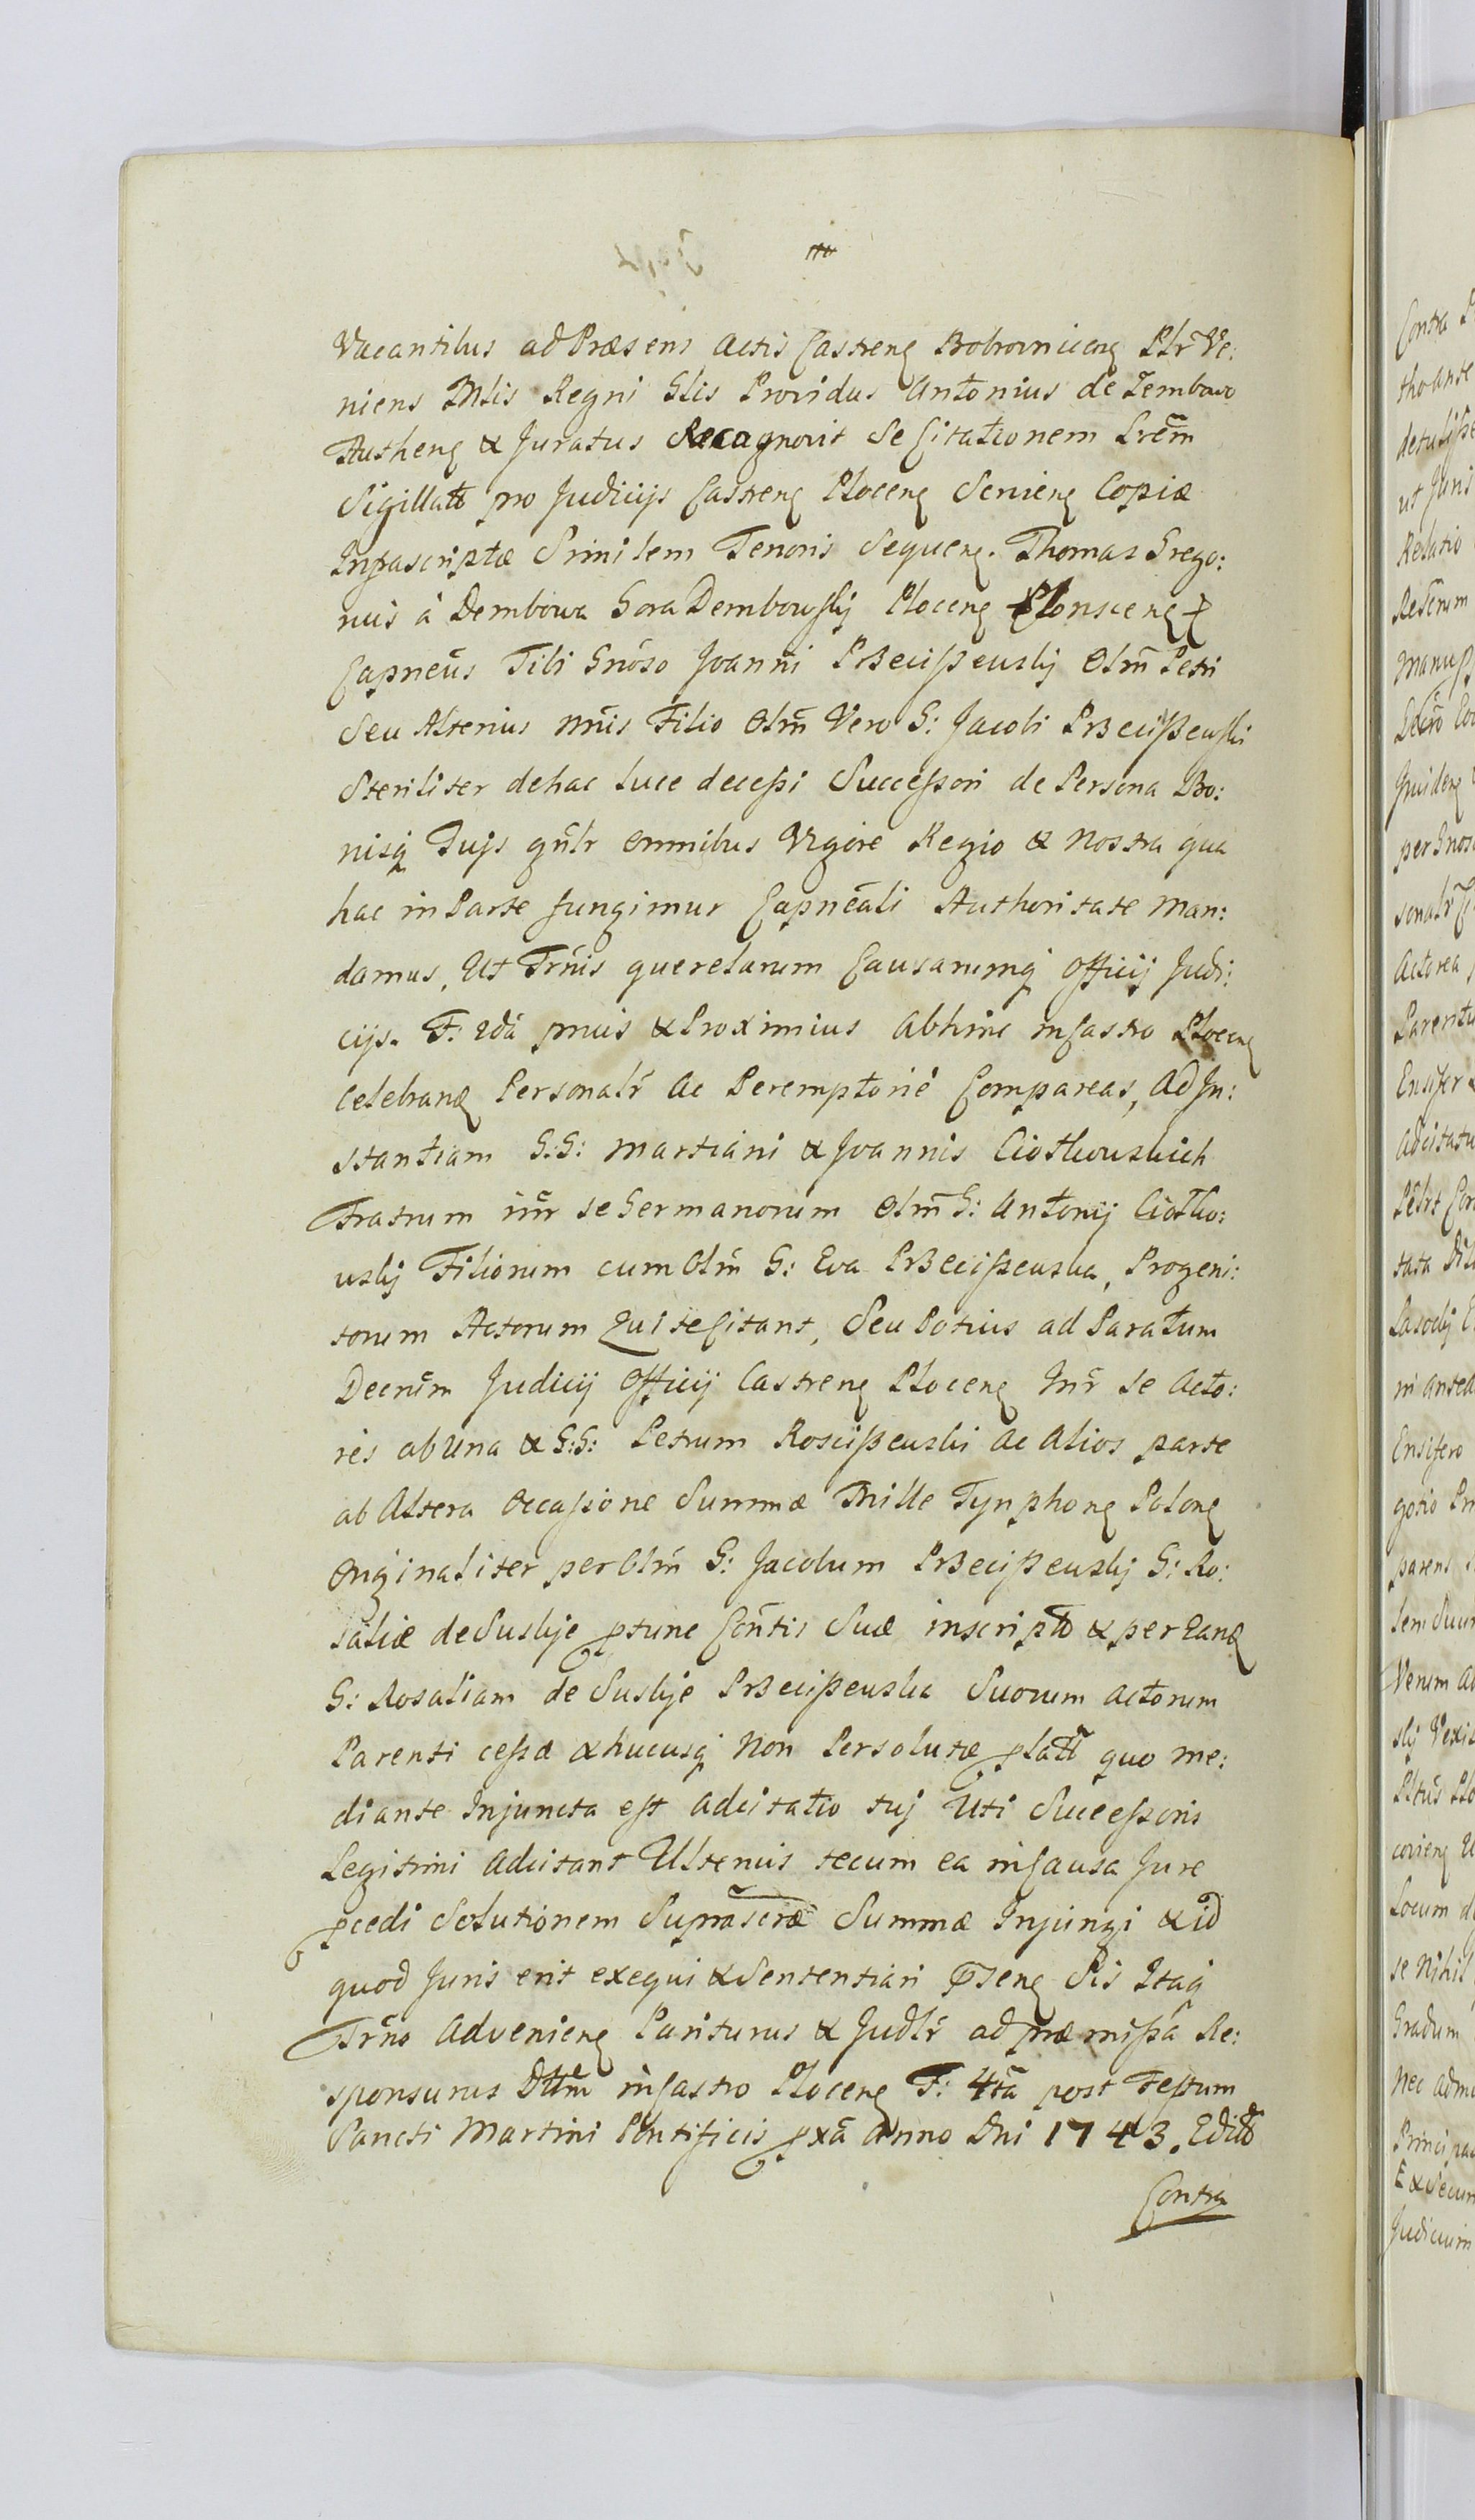 Vacantibus ad Præsens Actis Castreng Bobrowniceng Plr̃ Ve:
niens Mlis Regni Glis Providus Antonius de Zembowo
Autheng & Juratus Recognovit Se Citationem Lrẽm
Sigillatt pro Judicijs Castreng Ploceng Servieng Copiæ
Infrascriptæ Similem Tenoris Sequeng. Thomas Grego:
rius à Dembowa Gora Dembowskij Ploceng Plonsceng &
Capnẽus Tibi Gnõso Joanni Przeciszewskij Olim̃ Petri
Seu Alterius nm̃is Filio Olim̃ Vero G: Jacobi Przeciszewski
Steriliter de hac luce decessi Successori de Persona Bo:
nisq Tujs gnl̃r omnibus Vigore Regio & Nostra qua
hac in Parte fungimur Capneãli Authoritate Man:
damus, Ut Trm̃is querelarum Causarumq Officij Judi:
cijs. F: 2dã pmis & Proximius abhinc in Castro Ploceng
Celebrand Personalr̃ Ac Peremptoriè Compareas, Ad In:
stantiam G:G: Martiani & Joannis Ciotkowskich
Fratrum inr̃ se Germanorum Olim̃ G: Antonij Ciotko:
wskij Filiorum cum Olim̃ G: Eva Przeciszewska, Progeni:
torum Actorum Qui te Citant, Seu Potius ad Paratum
Decrũm Judicij Officij Castreng Ploceng Inr̃ se Acto:
res ab Una & G:G: Petrum Rosciszewski Ac Alios parte
ab Altera Occasione Summæ Mille Tynphong Polong
Originaliter per Olim̃ G: Jacobum Przeciszewskij G: Ro:
saliæ de Suskije ptunc Con̄tis Suæ inscriptt & per Eand
G: Rosaliam de Suskije Przeciszewska Suorum Actorum
Parenti cessæ & hucusq Non Persolutæ platt quo me:
diante Injuncta est Adcitatio tuj Uti Successoris
Legitimi Adcitant Ulterius tecum ea in Causa Jure
pcedi Solutionem Suprascræ̃ Summæ Injungi & id
quod Juris erit exequi & Sententiari pseng Sis Itaq
Trm̃o Advenieng Pariturus & Judlr̃ ad præmissa Re:
sponsurus Dttm in Castro Ploceng F: 4tã post Festum
Sancti Martini Pontificis pxã Anno Dni 1743. Editt
Contra